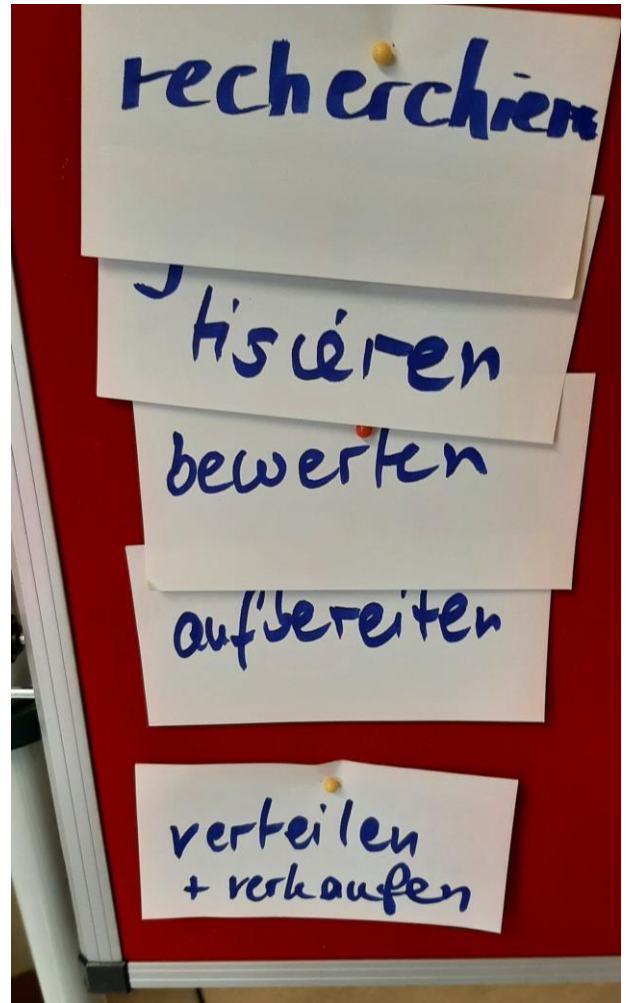 recherchieren
tisieren
bewerten
aufbereiten
verteilen
+ verkaufen